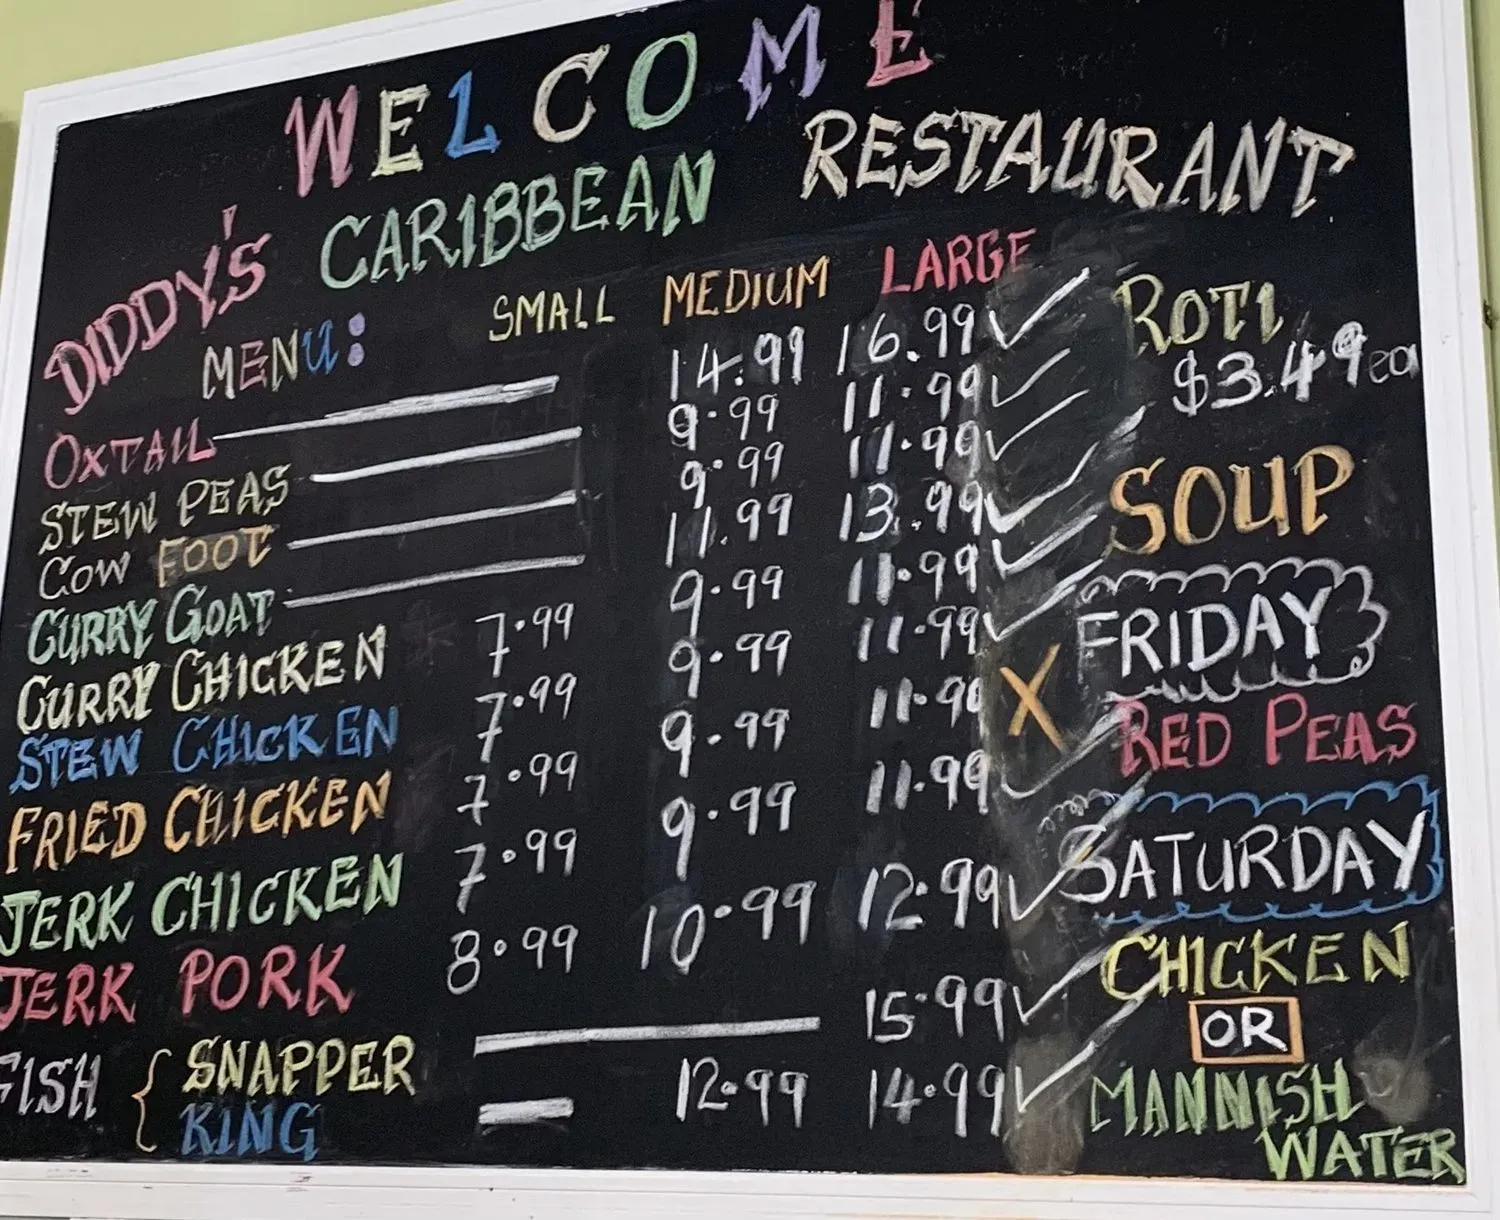 WELCOME
DIDDY'S CARIBBEAN RESTAURANT
MENU: SMALL MEDIUM LARGE
OXTAIL 14.99 16.99
STEW PEAS 9.99 11.99
COW FOOT 9.99 11.99
CURRY GOAT 11.99 13.99
CURRY CHICKEN 7.99 9.99 11.99
STEW CHICKEN 7.99 9.99 11.99
FRIED CHICKEN 7.99 9.99 11.99
JERK CHICKEN 7.99 9.99 11.99
JERK PORK 8.99 10.99 12.99
FISH { SNAPPER 15.99
KING 12.99 14.99
ROTI
$3.49ea
SOUP
FRIDAY
X RED PEAS
SATURDAY
CHICKEN
OR
MANNISH
WATER